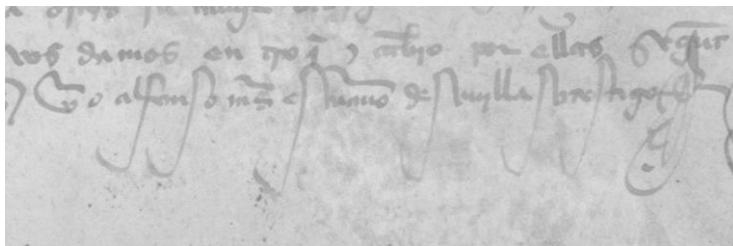 vos damos en troq̃ ⁊ canbio por ellas segunt
⁊ yo alfonso mr̃s escriuano de seuilla so testigo